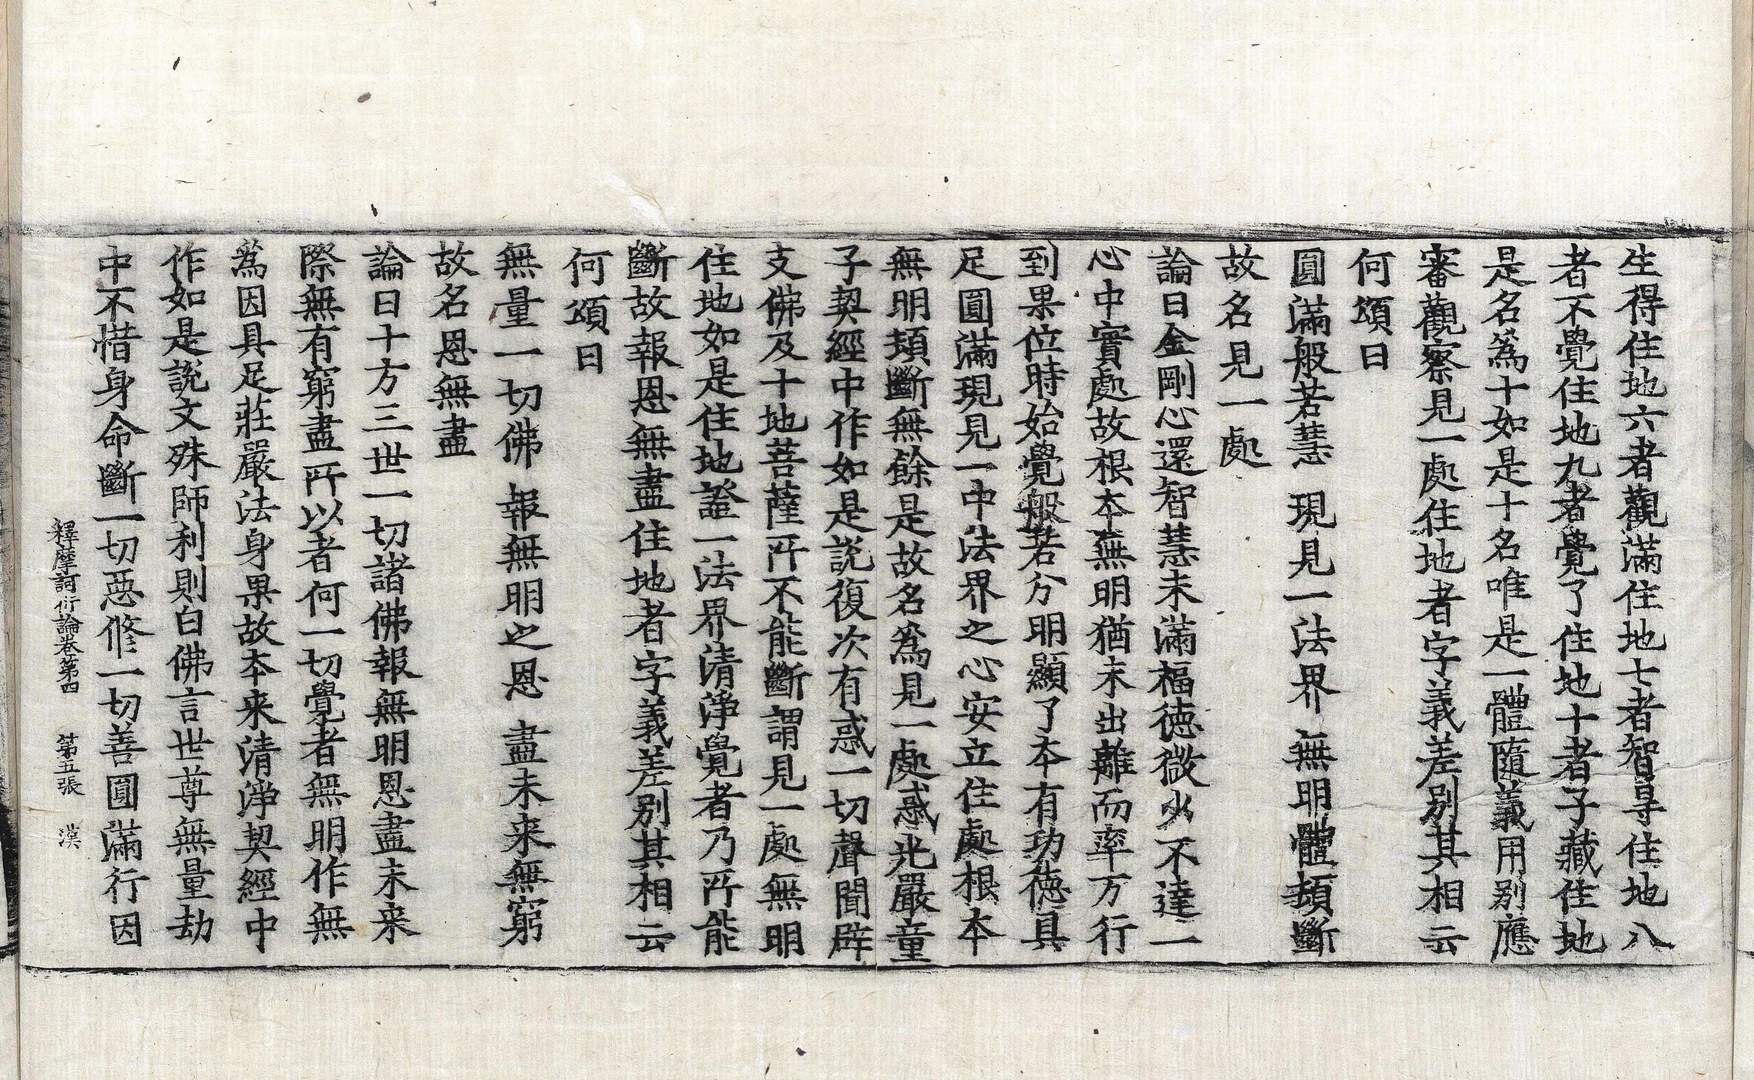 生得住地六者觀滿住地七者智㝵住地八
者不覺住地九者覺了住地十者子藏住地
是名爲十如是十名唯是一體隨義用別應
審觀察見一處住地者字義差別其相云
何頌曰
圓滿般若慧 現見一法界 無明體頓斷
故名見一處
論曰金剛心還智慧未滿福德微少不達二
心中實處故根本無明猶未出離而率方行
到果位時始覺般若分明顯了本有功德具
足圓滿現見一中法界之心安立住處根本
無明頓斷無餘是故名爲見一處惑光嚴童
子契經中作如是說復次有惑一切聲聞辟
支佛及十地菩薩所不能斷謂見一處無明
住地如是住地證一法界清淨覺者乃所能
斷故報恩無盡住地者字義差別其相云
何頌曰
無量一切佛 報無明之恩 盡未來無窮
故名恩無盡
論曰十方三世一切諸佛報無明恩盡未来
際無有窮盡所以者何一切覺者無明作無
爲因具足莊嚴法身果故本来清淨契經中
作如是說文殊師利則白佛言世尊無量劫
中不惜身命斷一切惡修一切善圓滿行因
釋摩訶衍論卷第四 第五張 漢